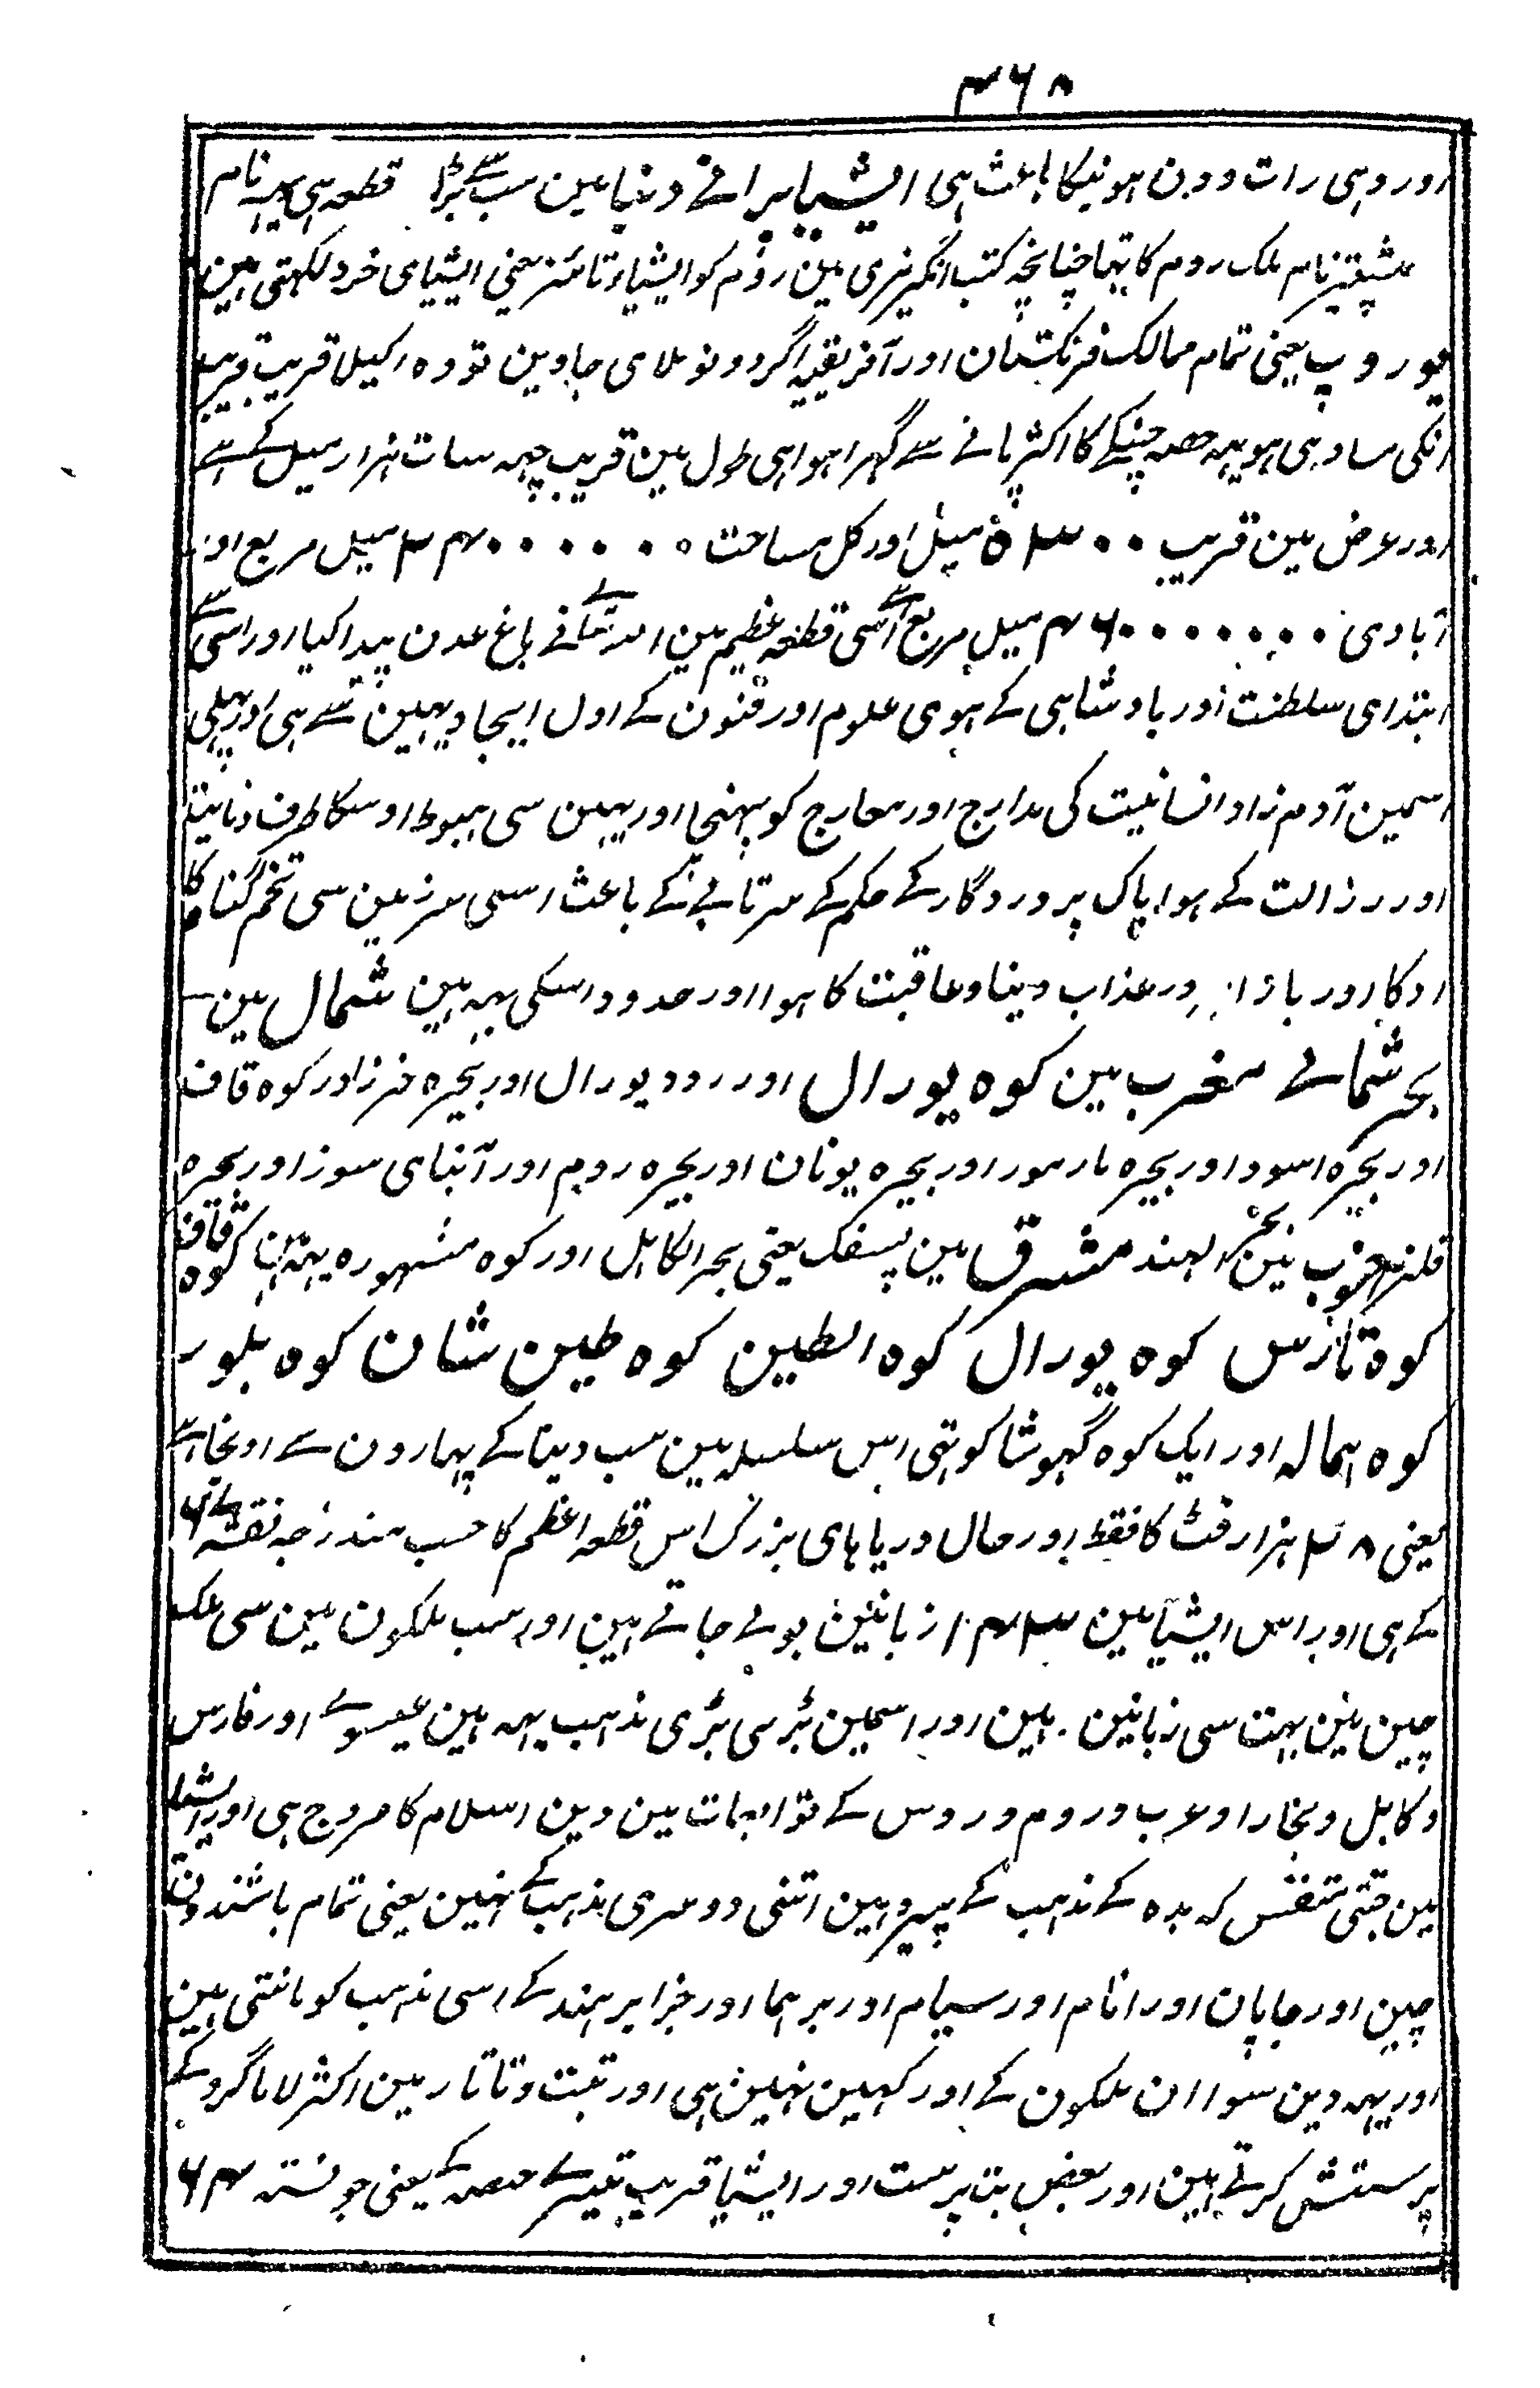 ۴۶۸
اور وہی رات و دن ہونیکا باعث ہی ایشیا پرانے دنیا مین سب سے بڑا قطعہ ہی یہہ نام
پیشتر نام ملک روم کا تہا چنانچہ کتب انگریزی مین روم کو ایشیاء تا ئنر یعنی ایشیای خرد لکہتی ہین
یوروپ یعنی تمام ممالک فرنگستان اور آفریقیہ اگر دونو ملای جاوین تو وہ اکیلا قریب قریب
انکی مساوہی ہو یہہ حصہ چنپکے کا اکثر پانے سے گہرا ہوا ہی طول مین قریب چہہ سات ہزار میل کے ہے
اور عرض مین قریب ۵۳۰۰ میل اور کل مساحت ۳۴۰۰۰۰۰۰ میل مربع اور
آبادی ۴۶۰۰۰۰۰۰۰ میل مربع ہے اسی قطعہ عظیم مین اللہ تعالے نے باغ عدن پیدا کیا اور اسی سے
ابتدای سلطنت اور بادشاہی کے ہوی علوم اور فنون کے اول ایجاد یہین سے ہی اور پہلی
اسمین آدم زاد انسانیت کی مدارج اور معارج کو پہنچا اور یہین سی ہبوط اوسکا طرف دنائیت
اور رذالت کے ہوا پاک پروردگار کے حکم کے سرتابے کے باعث اسی سرزمین سی تخم گناہ کا
اوگا اور باز اور عذاب دینا و عاقبت کا ہوا اور حدود اسکی یہہ ہین شمال مین
بحر شمالے مغرب مین کوہ یورال اور رود یورال اور بحیرہ خزر اور کوہ قاف
اور بحیرہ اسود اور بحیرہ مارمور اور بحیرہ یونان اور بحیرہ روم اور آبنای سوز اور بحرہ
قلزم جنوب مین بحر الہند مشرق مین پسفک یعنی بحر الکاہل اور کوہ مشہورہ یہہ ہین کوہ قاف
کوہ تارس کوہ یورال کوہ الطین کوہ طین شان کوہ بلور
کوہ ہمالہ اور ایک کوہ گہوشا کوتہی اس سلسلہ مین سب دینا کے پہارون سے اونچا ہے
یعنی ۲۸ ہزار فٹ کا فقط اور حال دریاہای بزرگ اس قطعہ اعظم کا حسب مندرجہ نقشہ ۶
کے ہی اور اس ایشیا مین ۱۴۳ زبانین بولے جاتے ہین اور سب ملکون مین سی ملک
چین مین بہت سی زبانین ہین اور اسمین بڑسی بڑی مذہب یہہ ہین عیسوے اور فارس
و کابل و بخارا و عرب و روم و روس کے توابعات مین دین اسلام کا مروج ہی اور ایشیا
مین جتنی متنفس کہ بدہ کے مذہب کے پیرو ہین اتنی دوسری مذہب کے نہین یعنی تمام باشندون
چین اور جاپان اور انام اور سیام اور برہما اور جزایر ہند کے اسی مذہب کو مانتی ہین
اور یہہ دین سوا ان ملکون کے اور کہین نہین ہی اور تبت و تاتار مین اکثر لاما گرو کے
پرستش کرتے ہین اور بعض بت پرست اور ایشیا قریب تیسرے حصہ کے یعنی چونسٹہ ۶۴